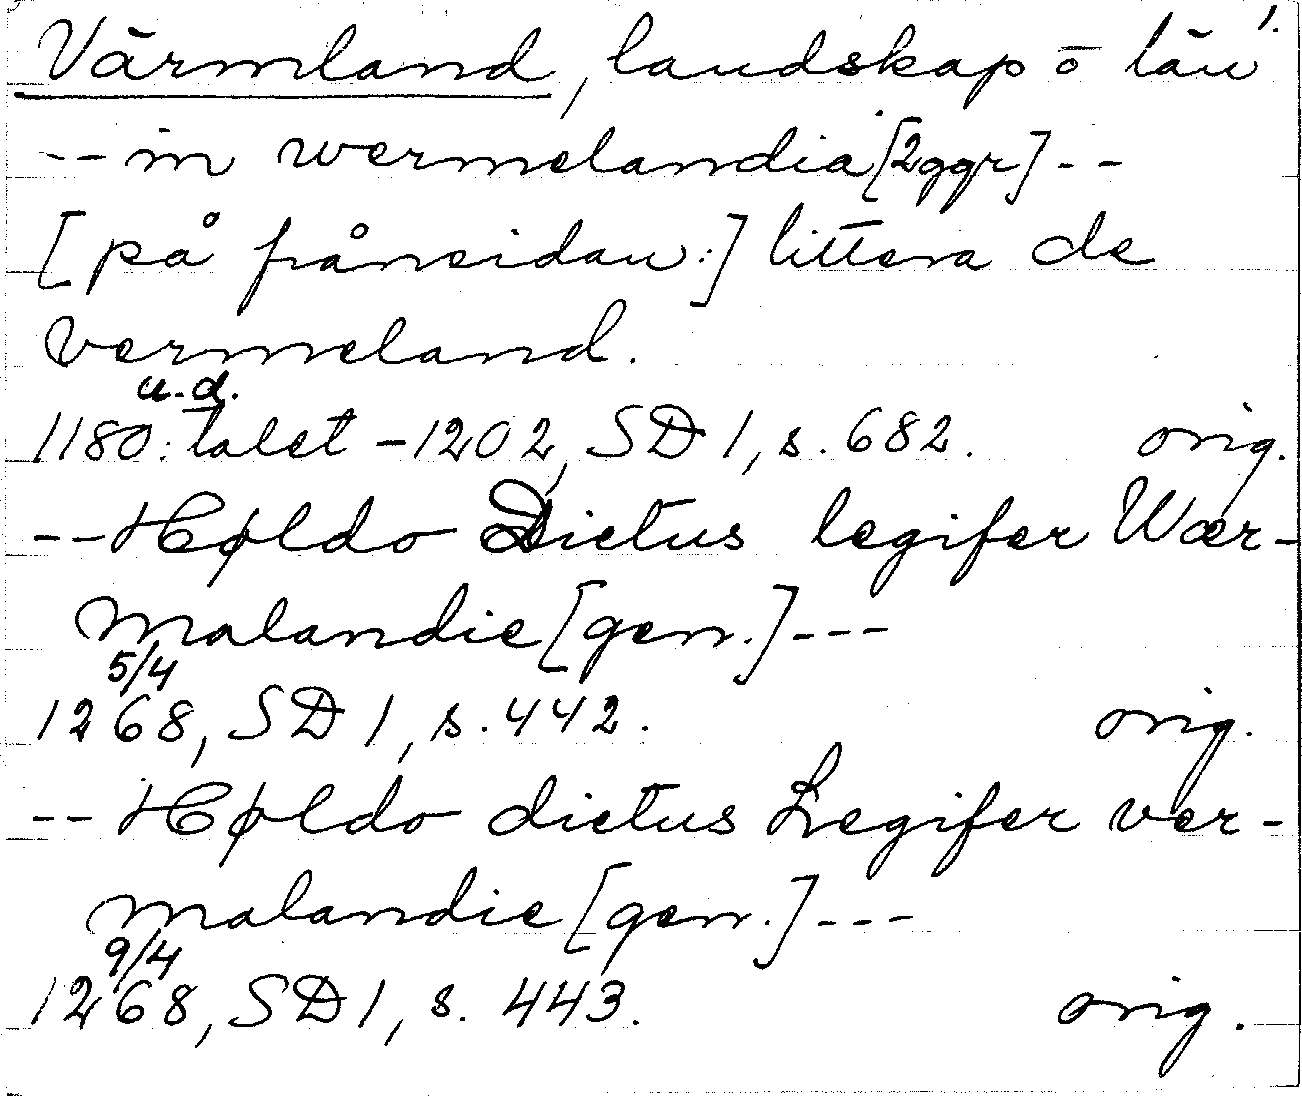 Värmland, landskap o län 1.
-- in wermelandia [2ggr] --
[på frånsidan:] littera de
vermeland.
u.d.
1180-talet - 1202, SD 1, s. 682. orig.
-- Høldo Dictus legifer Wær-
malandie [gen.] ---
5/4
1268, SD 1, s. 442. orig.
-- Høldo dictus Legifer ver-
malandie [gen.] ---
9/4
1268, SD 1, s. 443. orig.